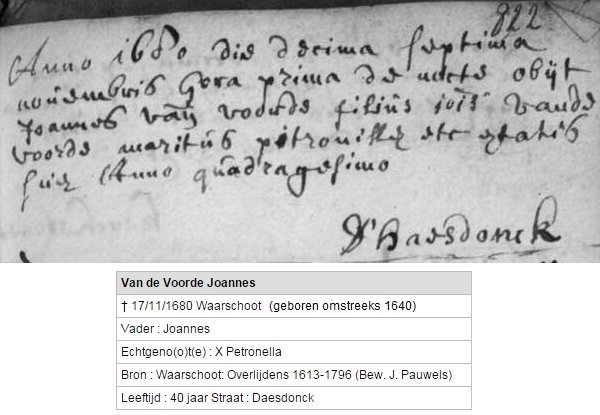 822
Anno 1680 die decima septima
nouembris hora prima de nocte obijt
Joannes van voorde filius iois vande
voorde maritus petronillæ etc ætatis
suæ Anno quadragesimo
D'haesdonck
Van de Voorde Joannes
† 17/11/1680 Waarschoot (geboren omstreeks 1640)
Vader : Joannes
Echtgeno(o)t(e) : X Petronella
Bron : Waarschoot: Overlijdens 1613-1796 (Bew. J. Pauwels)
Leeftijd : 40 jaar Straat : Daesdonck